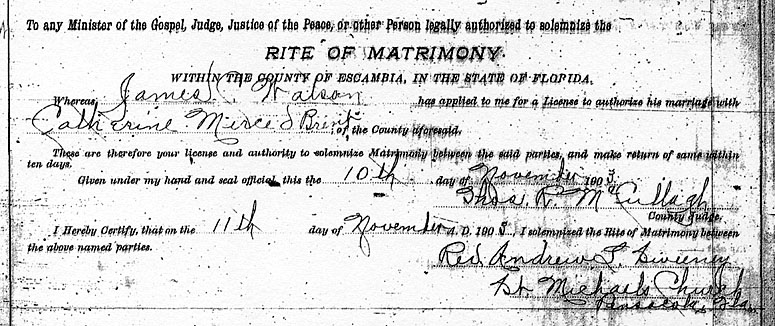 To any Minister of the Gospel, Judge, Justice of the Peace, or other Person legally authorized to solemnize the
RITE OF MATRIMONY
WITHIN THE COUNTY OF ESCAMBIA, IN THE STATE OF FLORIDA.
Whereas, James C. Watson has applied to me for a License to authorize his marriage with
Catherine Merced Brent of the County aforesaid.
These are therefore your license and authority to solemnize Matrimony between the said parties, and make return of same within
ten days.
Given under my hand and seal official, this the 10th day of November 1903.
Thos. R. McCullagh
County Judge.
I Hereby Certify, that on the 11th day of November A. D. 1903, I solemnized the Rite of Matrimony between
the above named parties.
Rev. Andrew Sweeney
St. Michaels Church
Pensacola, Fla.